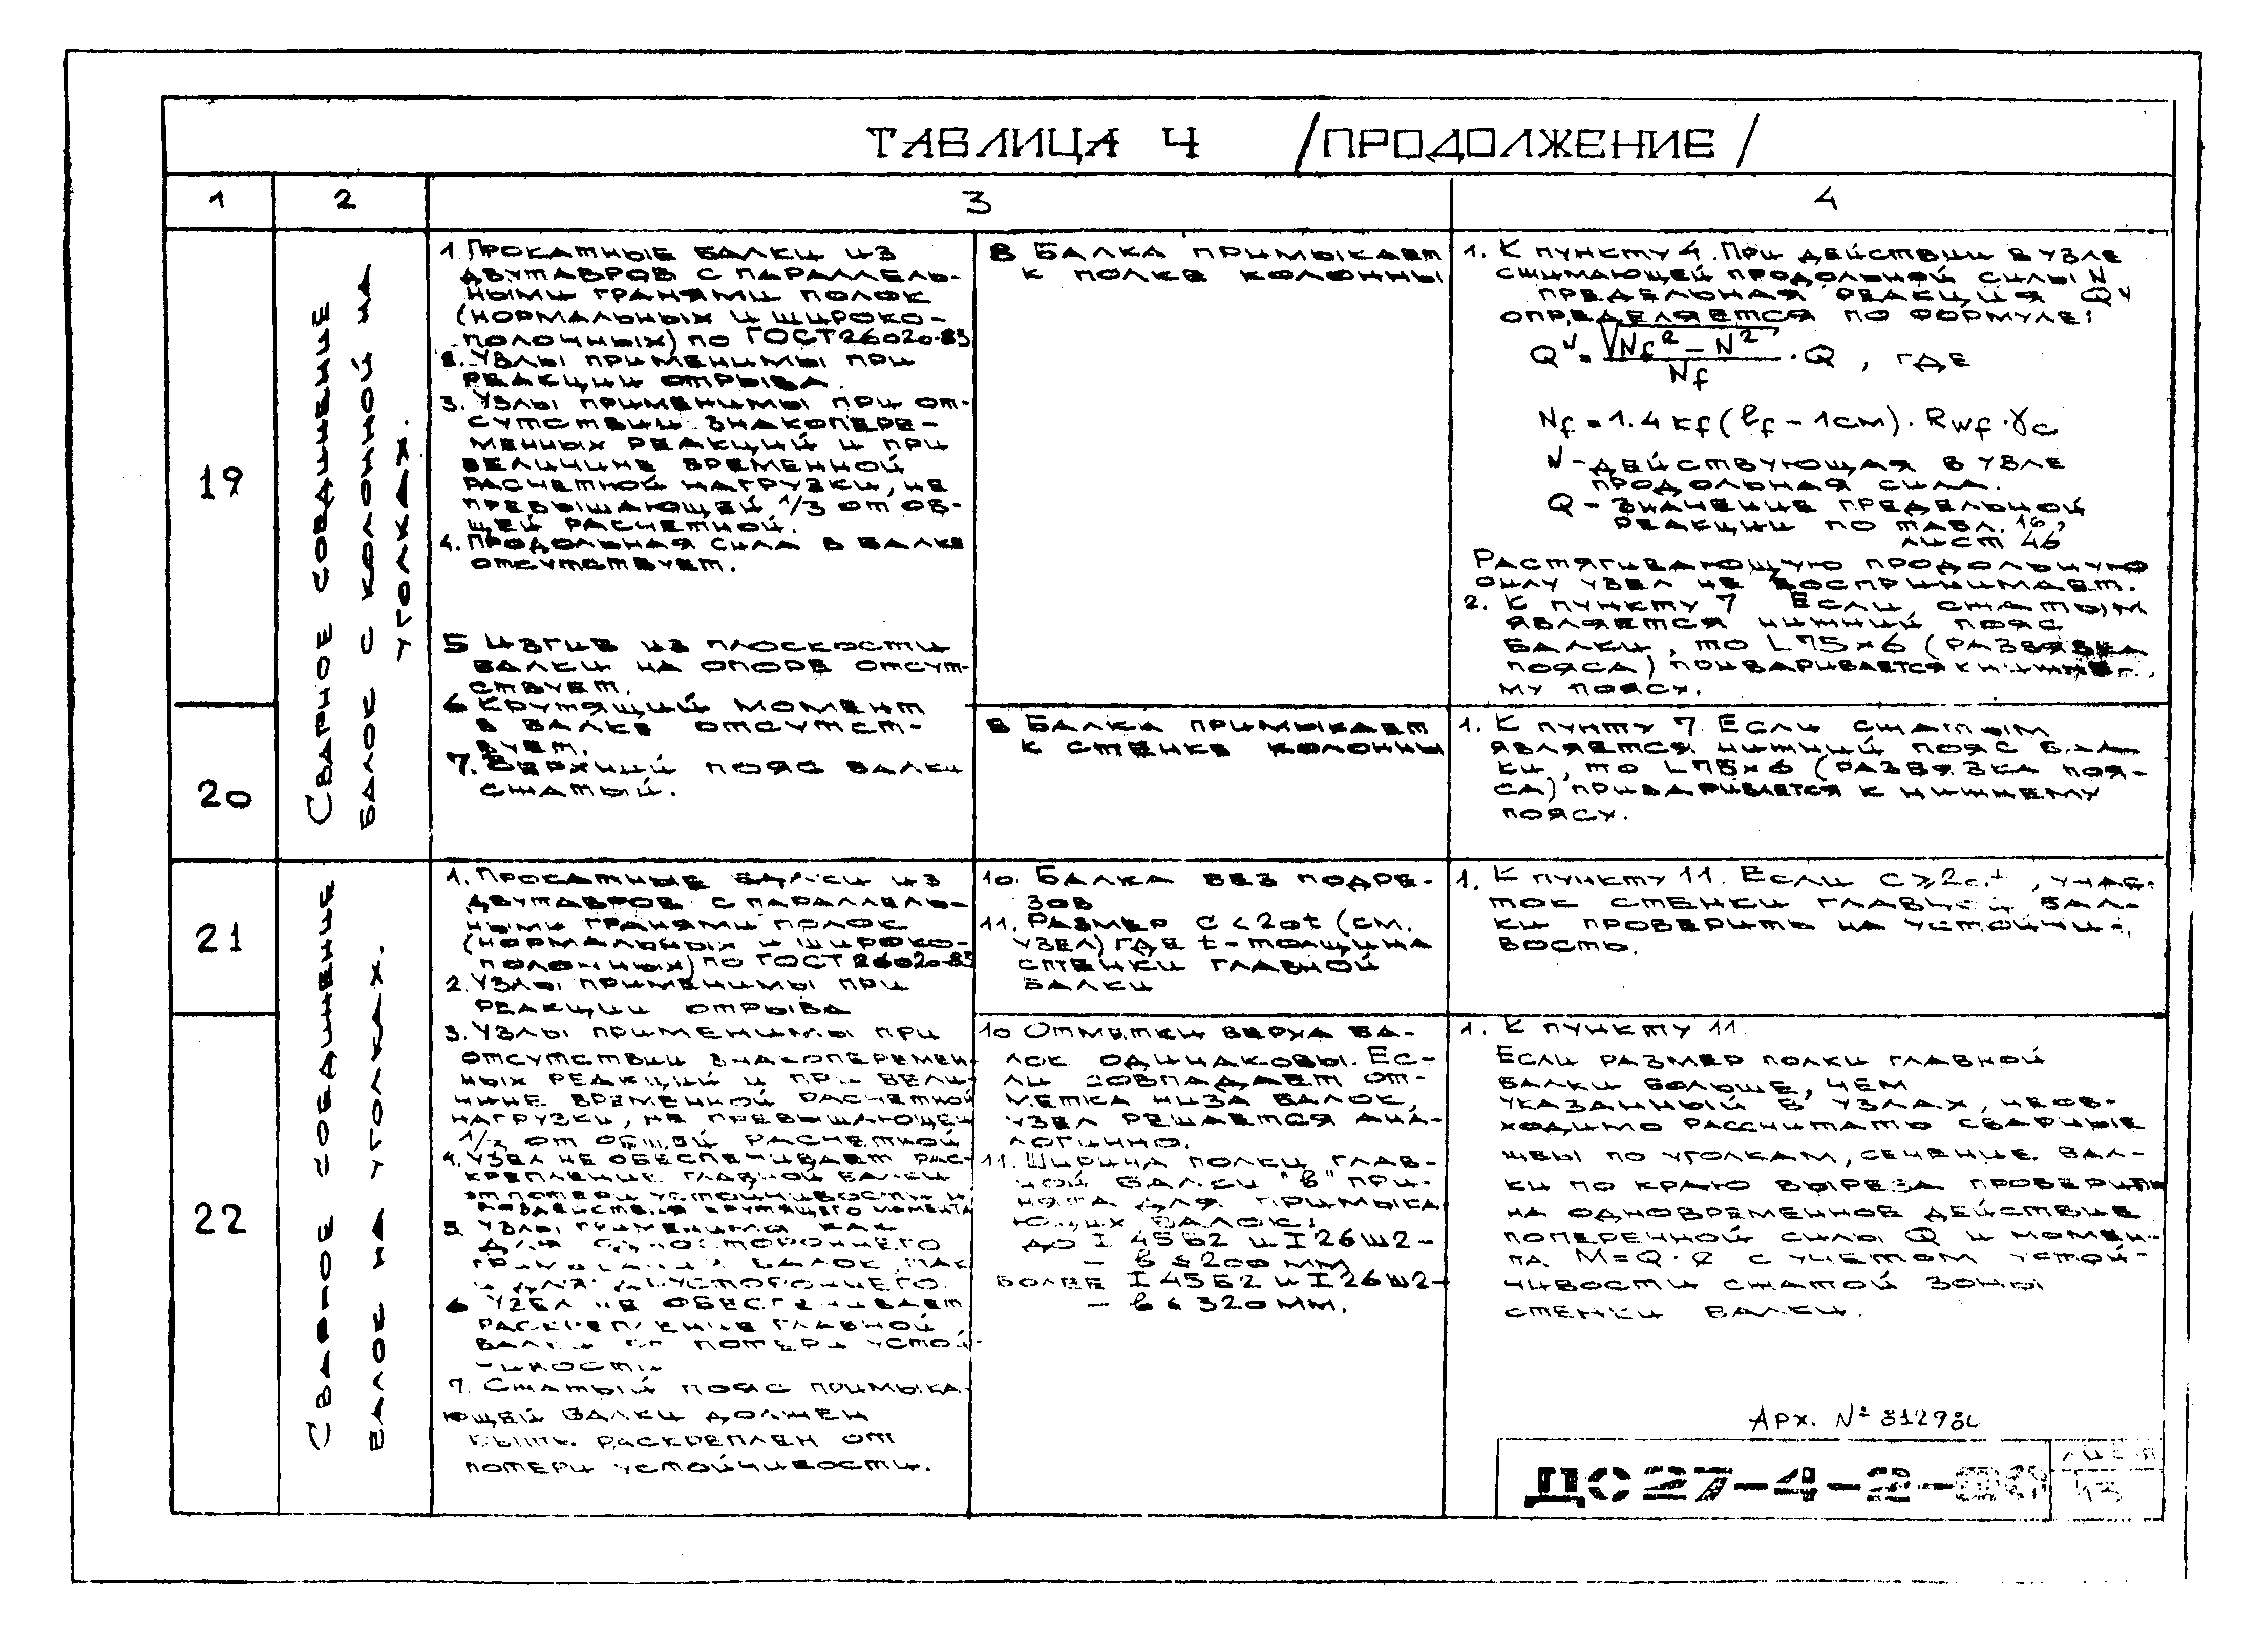 ТАБЛИЦА 4 /ПРОДОЛЖЕНИЕ/
1
2
3
4
19
20
СВАРНОЕ СОЕДИНЕНИЕ
БАЛОК С КОЛОННОЙ НА
УГОЛКАХ.
1. ПРОКАТНЫЕ БАЛКИ ИЗ
ДВУТАВРОВ С ПАРАЛЛЕЛЬ-
НЫМИ ГРАНЯМИ ПОЛОК
(НОРМАЛЬНЫХ И ШИРОКО-
ПОЛОЧНЫХ) ПО ГОСТ 26020-83
2. УЗЛЫ ПРИМЕНИМЫ ПРИ
РЕАКЦИИ ОТРЫВА.
3. УЗЛЫ ПРИМЕНИМЫ ПРИ ОТ-
СУТСТВИИ ЗНАКОПЕРЕ-
МЕННЫХ РЕАКЦИЙ И ПРИ
ВЕЛИЧИНЕ ВРЕМЕННОЙ
РАСЧЕТНОЙ НАГРУЗКИ, НЕ
ПРЕВЫШАЮЩЕЙ 1/3 ОТ ОБ-
ЩЕЙ РАСЧЕТНОЙ.
4. ПРОДОЛЬНАЯ СИЛА В БАЛКЕ
ОТСУТСТВУЕТ.
5 ИЗГИБ ИЗ ПЛОСКОСТИ
БАЛКИ НА ОПОРЕ ОТСУТ-
СТВУЕТ.
6 КРУТЯЩИЙ МОМЕНТ
В БАЛКЕ ОТСУТСТ-
ВУЕТ.
7. ВЕРХНИЙ ПОЯС БАЛКИ
СЖАТЫЙ.
8 БАЛКА ПРИМЫКАЕТ
К ПОЛКЕ КОЛОННЫ
1. К ПУНКТУ 4. ПРИ ДЕЙСТВИИ В УЗЛЕ
СЖИМАЮЩЕЙ ПРОДОЛЬНОЙ СИЛЫ N
ПРЕДЕЛЬНАЯ РЕАКЦИЯ Qᴺ
ОПРЕДЕЛЯЕТСЯ ПО ФОРМУЛЕ:
Qᴺ = √(Nf² − N²) / Nf · Q , ГДЕ
Nf = 1.4 kf (ℓf − 1см) · Rwf · γc
N - ДЕЙСТВУЮЩАЯ В УЗЛЕ
ПРОДОЛЬНАЯ СИЛА.
Q - ЗНАЧЕНИЕ ПРЕДЕЛЬНОЙ
РЕАКЦИИ ПО ТАБЛ. 16,
ЛИСТ 46
РАСТЯГИВАЮЩУЮ ПРОДОЛЬНУЮ
СИЛУ УЗЕЛ НЕ ВОСПРИНИМАЕТ.
2. К ПУНКТУ 7 ЕСЛИ СЖАТЫМ
ЯВЛЯЕТСЯ НИЖНИЙ ПОЯС
БАЛКИ, ТО L 75×6 (РАЗВЯЗКА
ПОЯСА) ПРИВАРИВАЕТСЯ К НИЖНЕ-
МУ ПОЯСУ.
8 БАЛКА ПРИМЫКАЕТ
К СТЕНКЕ КОЛОННЫ
1. К ПУНТУ 7. ЕСЛИ СЖАТЫМ
ЯВЛЯЕТСЯ НИЖНИЙ ПОЯС БАЛ-
КИ, ТО L 75×6 (РАЗВЯЗКА ПОЯ-
СА) ПРИВАРИВАЕТСЯ К НИЖНЕМУ
ПОЯСУ.
21
22
СВАРНОЕ СОЕДИНЕНИЕ
БАЛОК НА УГОЛКАХ.
1. ПРОКАТНЫЕ БАЛКИ ИЗ
ДВУТАВРОВ С ПАРАЛЛЕЛЬ-
НЫМИ ГРАНЯМИ ПОЛОК
(НОРМАЛЬНЫХ И ШИРОКО-
ПОЛОЧНЫХ) ПО ГОСТ 26020-83
2. УЗЛЫ ПРИМЕНИМЫ ПРИ
РЕАКЦИИ ОТРЫВА
3. УЗЛЫ ПРИМЕНИМЫ ПРИ
ОТСУТСТВИИ ЗНАКОПЕРЕМЕН-
НЫХ РЕАКЦИЙ И ПРИ ВЕЛИ-
ЧИНЕ ВРЕМЕННОЙ РАСЧЕТНОЙ
НАГРУЗКИ, НЕ ПРЕВЫШАЮЩЕЙ
1/3 ОТ ОБЩЕЙ РАСЧЕТНОЙ
4. УЗЕЛ НЕ ОБЕСПЕЧИВАЕТ РАС-
КРЕПЛЕНИЕ ГЛАВНОЙ БАЛКИ
ОТ ПОТЕРИ УСТОЙЧИВОСТИ И
ВОЗДЕЙСТВИЯ КРУТЯЩЕГО МОМЕНТА
5 УЗЛЫ ПРИМЕНИМЫ КАК
ДЛЯ ОДНОСТОРОННЕГО
ПРИМЫКАНИЯ БАЛОК, ТАК
И ДЛЯ ДВУСТОРОННЕГО.
6 УЗЕЛ НЕ ОБЕСПЕЧИВАЕТ
РАСКРЕПЛЕНИЕ ГЛАВНОЙ
БАЛКИ ОТ ПОТЕРИ УСТОЙ-
ЧИВОСТИ
7. СЖАТЫЙ ПОЯС ПРИМЫКА-
ЮЩЕЙ БАЛКИ ДОЛЖЕН
БЫТЬ РАСКРЕПЛЕН ОТ
ПОТЕРИ УСТОЙЧИВОСТИ.
10. БАЛКА БЕЗ ПОДРЕ-
ЗОВ
11. РАЗМЕР С < 20t (СМ.
УЗЕЛ) ГДЕ t - ТОЛЩИНА
СТЕНКИ ГЛАВНОЙ
БАЛКИ
1. К ПУНКТУ 11. ЕСЛИ С ⩾ 20t, УЧАС-
ТОК СТЕНКИ ГЛАВНОЙ БАЛ-
КИ ПРОВЕРИТЬ НА УСТОЙЧИ-
ВОСТЬ.
10 ОТМЕТКИ ВЕРХА БА-
ЛОК ОДИНАКОВЫ. ЕС-
ЛИ СОВПАДАЕТ ОТ-
МЕТКА НИЗА БАЛОК,
УЗЕЛ РЕШАЕТСЯ АНА-
ЛОГИЧНО.
11. ШИРИНА ПОЛКИ ГЛАВ-
НОЙ БАЛКИ "b" ПРИ-
НЯТА ДЛЯ ПРИМЫКА
ЮЩИХ БАЛОК:
ДО I 45Б2 И I 26Ш2 -
- b ≤ 200 ММ
БОЛЕЕ I 45Б2 И I 26Ш2 -
- b ≤ 320 ММ.
1. К ПУНКТУ 11
ЕСЛИ РАЗМЕР ПОЛКИ ГЛАВНОЙ
БАЛКИ БОЛЬШЕ, ЧЕМ
УКАЗАННЫЙ В УЗЛАХ, НЕОБ-
ХОДИМО РАССЧИТАТЬ СВАРНЫЕ
ШВЫ ПО УГОЛКАМ, СЕЧЕНИЕ БАЛ-
КИ ПО КРАЮ ВЫРЕЗА ПРОВЕРИТЬ
НА ОДНОВРЕМЕННОЕ ДЕЙСТВИЕ
ПОПЕРЕЧНОЙ СИЛЫ Q И МОМЕН-
ТА M=Q·ℓ С УЧЕТОМ УСТОЙ-
ЧИВОСТИ СЖАТОЙ ЗОНЫ
СТЕНКИ БАЛКИ.
АРХ. №
ДС27-4-2-
ЛИСТ
13